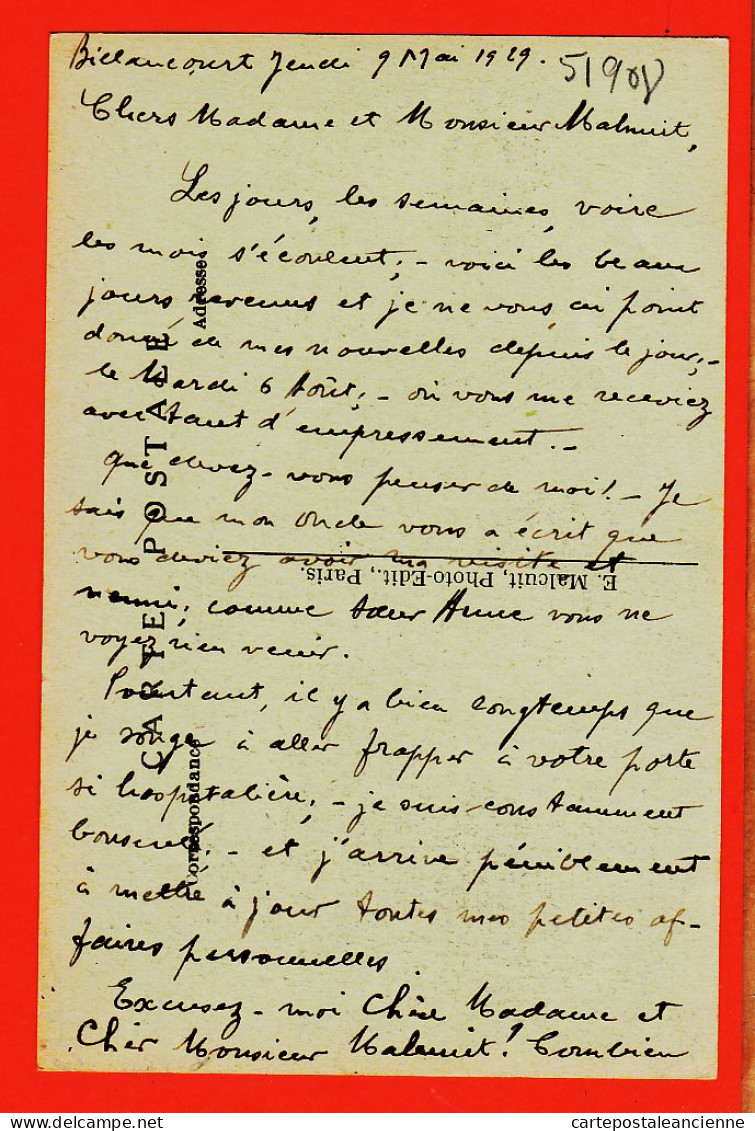 Billancourt Jeudi 9 Mai 1929.
51908
Chers Madame et Monsieur Malnuit,
Les jours, les semaines, voire
les mois s'écoulent; - voici les beaux
jours revenus et je ne vous ai point
donné de mes nouvelles depuis le jour, -
le Mardi 6 Août; - où vous me receviez
avec tant d'empressement. -
Que devez-vous penser de moi! - Je
sais que mon Oncle vous a écrit que
vous deviez avoir ma visite et
nenni; comme Sœur Anne vous ne
voyez rien venir.
Pourtant, il y a bien longtemps que
je songe à aller frapper à votre porte
si hospitalière; - je suis constamment
bousculé. - et j'arrive péniblement
à mettre à jour toutes mes petites af-
faires personnelles
Excusez-moi Chère Madame et
Cher Monsieur Malnuit! Combien
CARTE POSTALE
Correspondance
Adresse
E. Malcuit, Photo-Edit., Paris.
cartepostaleancienne